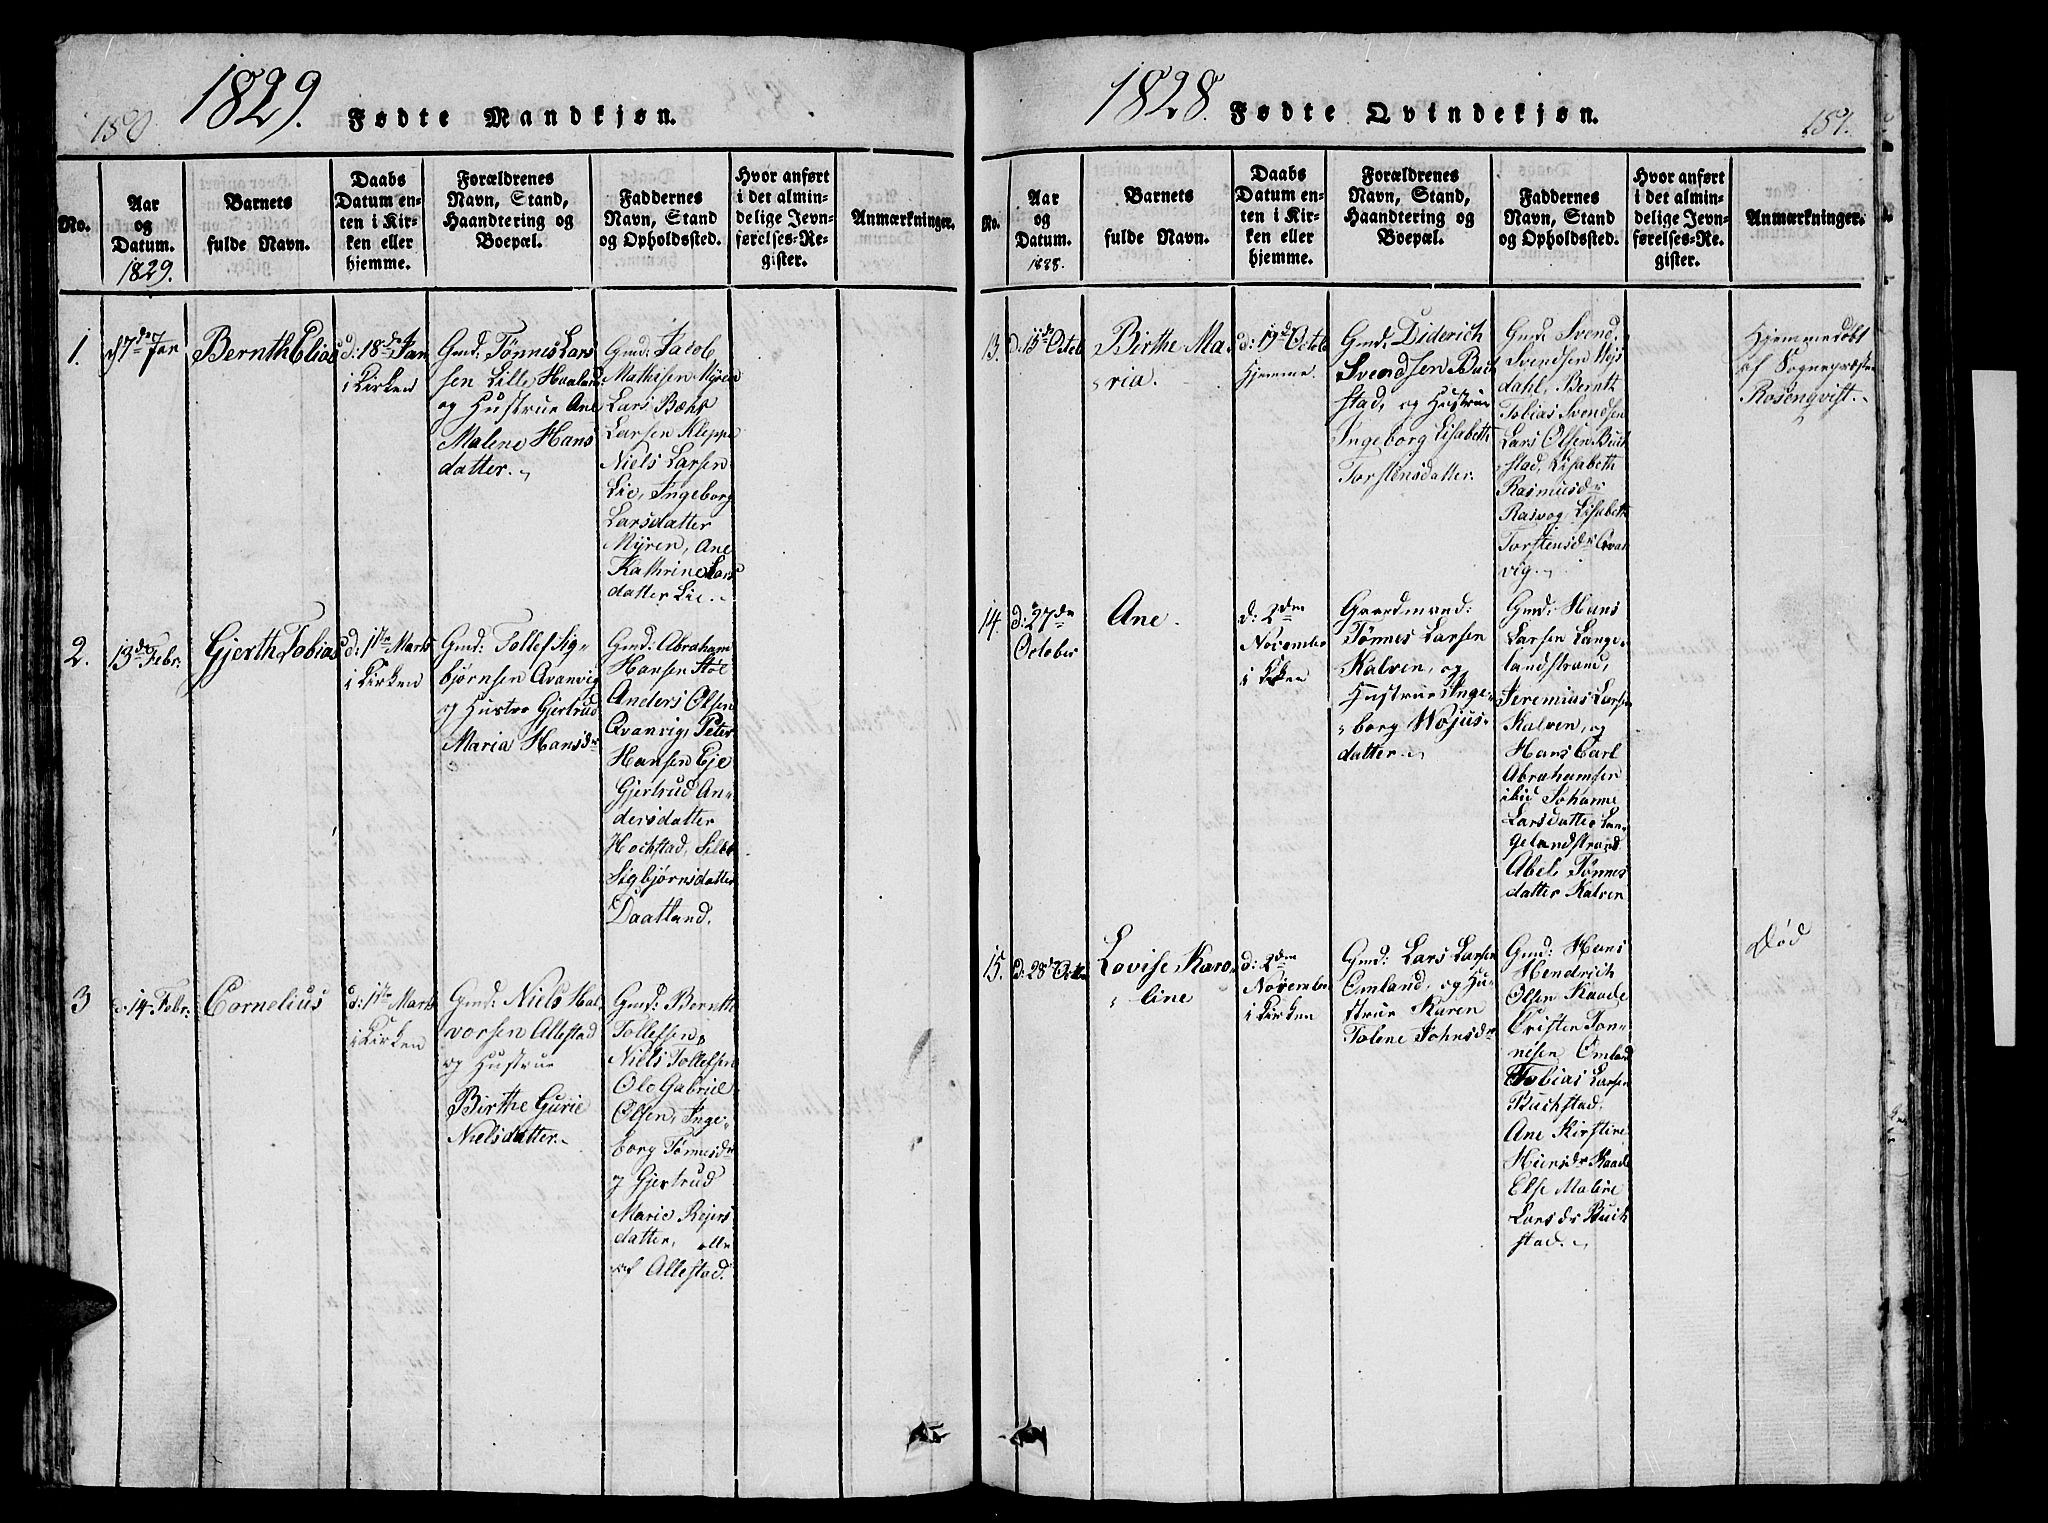 150
1829.
Fødte Mandkjøn.
No.
Aar
og
Datum.
1829.
Barnets
fulde Navn.
Daabs
Datum en-
ten i Kir-
ken eller
hjemme.
Forældrenes
Navn, Stand,
Haandtering og
Boepæl.
Faddernes
Navn, Stand
og Opholdssted.
Hvor anført
i det almin-
delige Jevn-
førelses-Re-
gister.
Anmærkninger.
1.
7de Jan
Bernth Elias
d: 18de Jan
i Kirken
Gmd: Tønnes Lars
sen Lille Haaland
og Hustrue Ane
Malene Hans
datter.
Gmd: Jacob
Mathisen Myren
Lars Bæhr
Larsen Kleppe
Niels Larsen
Lie, Ingeborg
Larsdatter
Myren, Ane
Kathrine Lars
datter Lie.
2.
13de Febr:
Gjerth Tobias
d: 17te Marts
i Kirken
Gmd: Tollef Sig-
bjørnsen Qvanvig
og Hustru Gjertrud
Maria Hansdr
Gmd: Abraham
Hansen Stoe
Anders Olsen
Qvanvig, Peter
Hansen Eje
Gjertrud An-
dersdatter
Hochstad,
Sigbjørnsdatter
Daatland.
3
14 Febr:
Cornelius
d: 17te Marts
i Kirken
Gmd: Niels Hal
vorsen Allestad
og Hustrue
Birthe Gurie
Nielsdatter.
Gmd: Bernth
Tollefsen,
Niels Tollefsen
Ole Gabriel
Olsen, Inge-
borg Tønnesdr
og Gjertrud
Marie Rejers
datter, alle
af Allestad.
1828.
Fødte Qvindekjøn.
151.
No.
Aar
og
Datum.
1828.
Barnets
fulde Navn.
Daabs
Datum en-
ten i Kir-
ken eller
hjemme.
Forældrenes
Navn, Stand,
Haandtering og
Boepæl.
Faddernes
Navn, Stand
og Opholdssted.
Hvor anført
i det almin-
delige Jevn-
førelses-Re-
gister.
Anmærkninger.
13.
d: 15de Octob
Birthe Ma-
ria.
d: 19d Octob
Hjemme.
Gmd: Diderich
Svendsen Buch
stad, og Hustrue
Ingeborg Lisabeth
Torstensdatter.
Gmd: Svend
Svendsen
dahl, Bernth
Tobias Svendsen
Lars Olsen Buch
stad, Lisabeth
Rasmusdr
Rasvog Lisabeth
Torstensdr Qvan
vig.
Hjemmedøbt
af Sognepræsten
Rosenqvist.
14.
d: 27de
October
Ane.
d: 2den
Novembr
i Kirken
Gaardmand:
Tønnes Larsen
Kalven, og
Hustrue Inge-
borg Wojus-
datter.
Gmd: Hans
Larsen Lange-
landstrand,
Jeremias Larsen
Kalven, og
Hans Carl
Abrahamsen
ibid Johanne
Larsdatter Lan-
gelandstrand
Abel Tønnes
datter Kalven
15.
d: 28 Octo
Lovise Karo-
line
d: 2den
November
i Kirken
Gmd: Lars Larsen
Omland, og Hu-
strue Karen
Tolene Johnsdr
Gmd: Hans
Hendrich
Olsen Kaade
Cristen Ton-
nesen Omland
Tobias Larsen
Buchstad,
Ane Kirstine
Hansdr Kaade
Else Malene
Larsdr Buch
stad.
Død